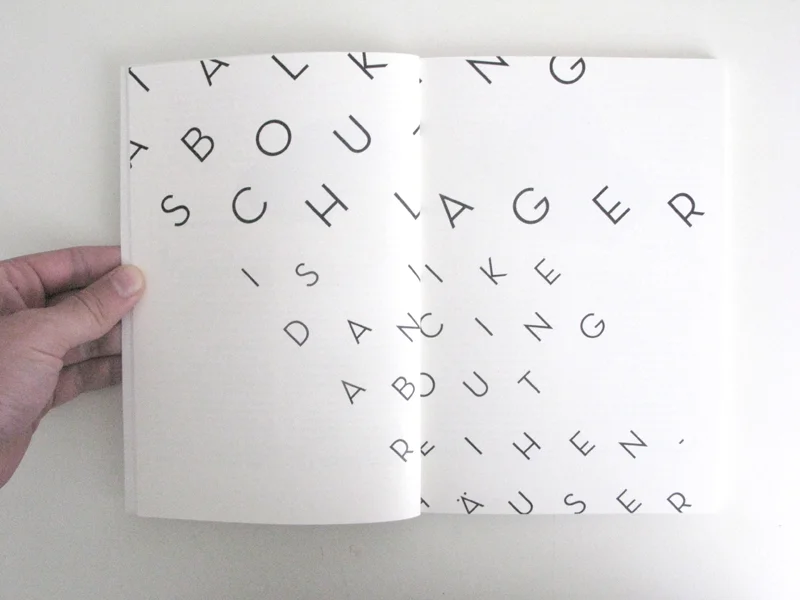 TALKING
ABOUT
SCHLAGER
IS LIKE
DANCING
ABOUT
REIHEN-
HÄUSER